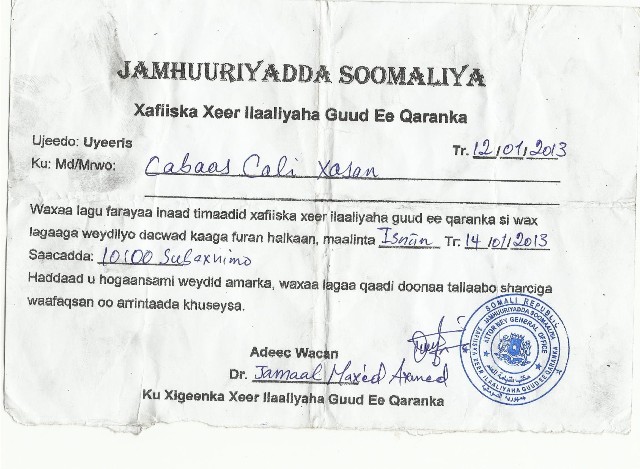 JAMHUURIYADDA SOOMALIYA
Xafiiska Xeer Ilaaliyaha Guud Ee Qaranka
Ujeedo: Uyeeris Tr. 12/01/2013
Ku: Md/Mrwo: Cabaas Cali Xasan
Waxaa lagu farayaa inaad timaadid xafiiska xeer ilaaliyaha guud ee qaranka si wax
lagaaga weydiiyo dacwad kaaga furan halkaan, maalinta Isniin Tr: 14/01/2013
Saacadda: 10:00 Subaxnimo
Haddaad u hogaansami weydid amarka, waxaa lagaa qaadi doonaa tallaabo sharciga
waafaqsan oo arrintaada khuseysa.
Adeec Wacan
Dr. Jamaal Maxed Axmed
Ku Xigeenka Xeer Ilaaliyaha Guud Ee Qaranka
SOMALI REPUBLIC
JAMHUURIYADDA SOOMAALIYA
GENERAL OFFICE
XEER ILAALIYAHA GUUD EE QARANKA